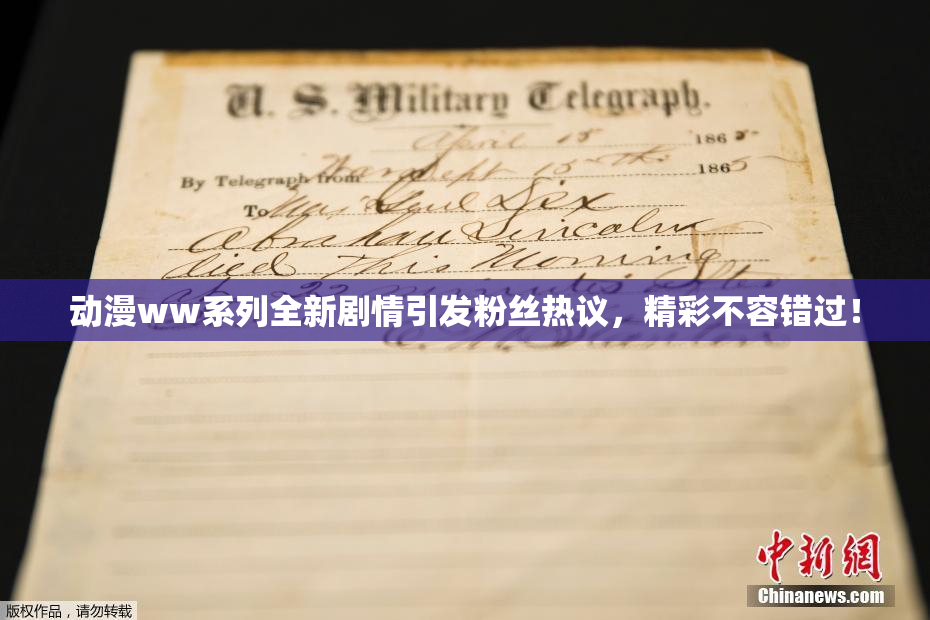 U. S. Military Telegraph.
April 15 1865
By Telegraph from War Dept 15th 1865
To Maj Genl Dix
Abraham Lincoln
died This Morning
at 22 minutes after
动漫ww系列全新剧情引发粉丝热议，精彩不容错过！
E. M. Stanton
中新网
Chinanews.com
版权作品，请勿转载